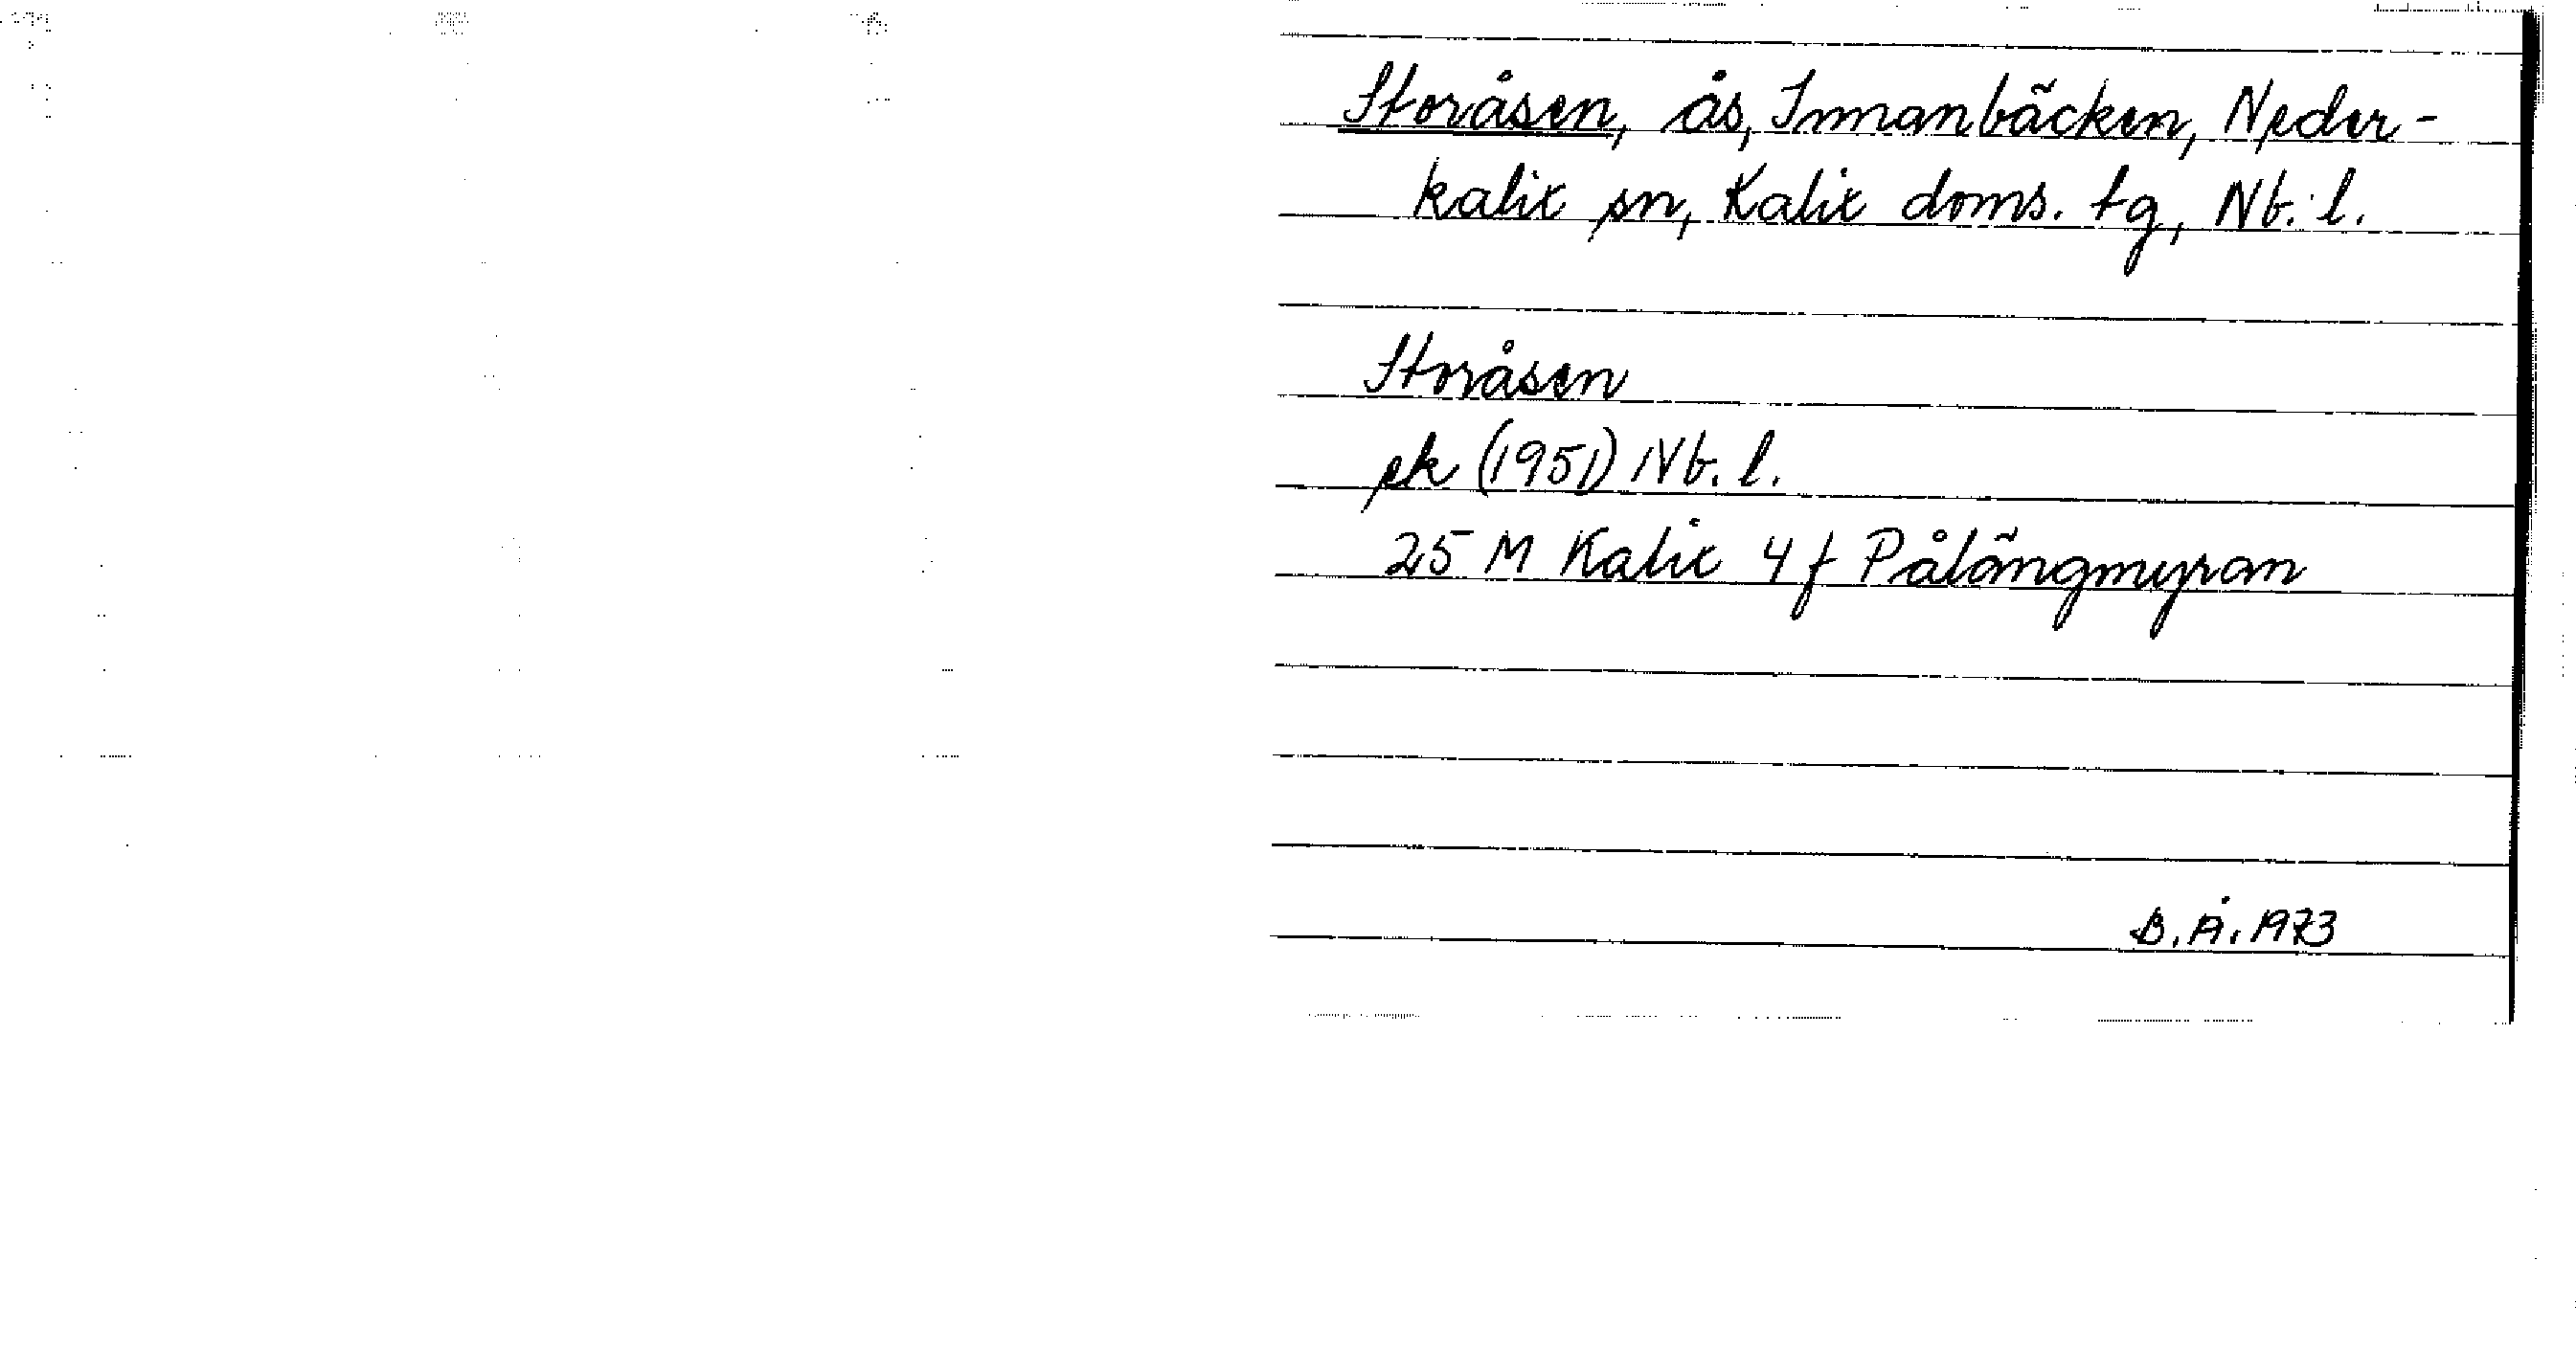 Storåsen, ås, Innanbäcken, Neder-
kalix sn, Kalix doms. tg, Nb. l.
Storåsen
ek (1951) Nb. l.
25 M Kalix 4 f Pålängmyran
B. Å. 1973